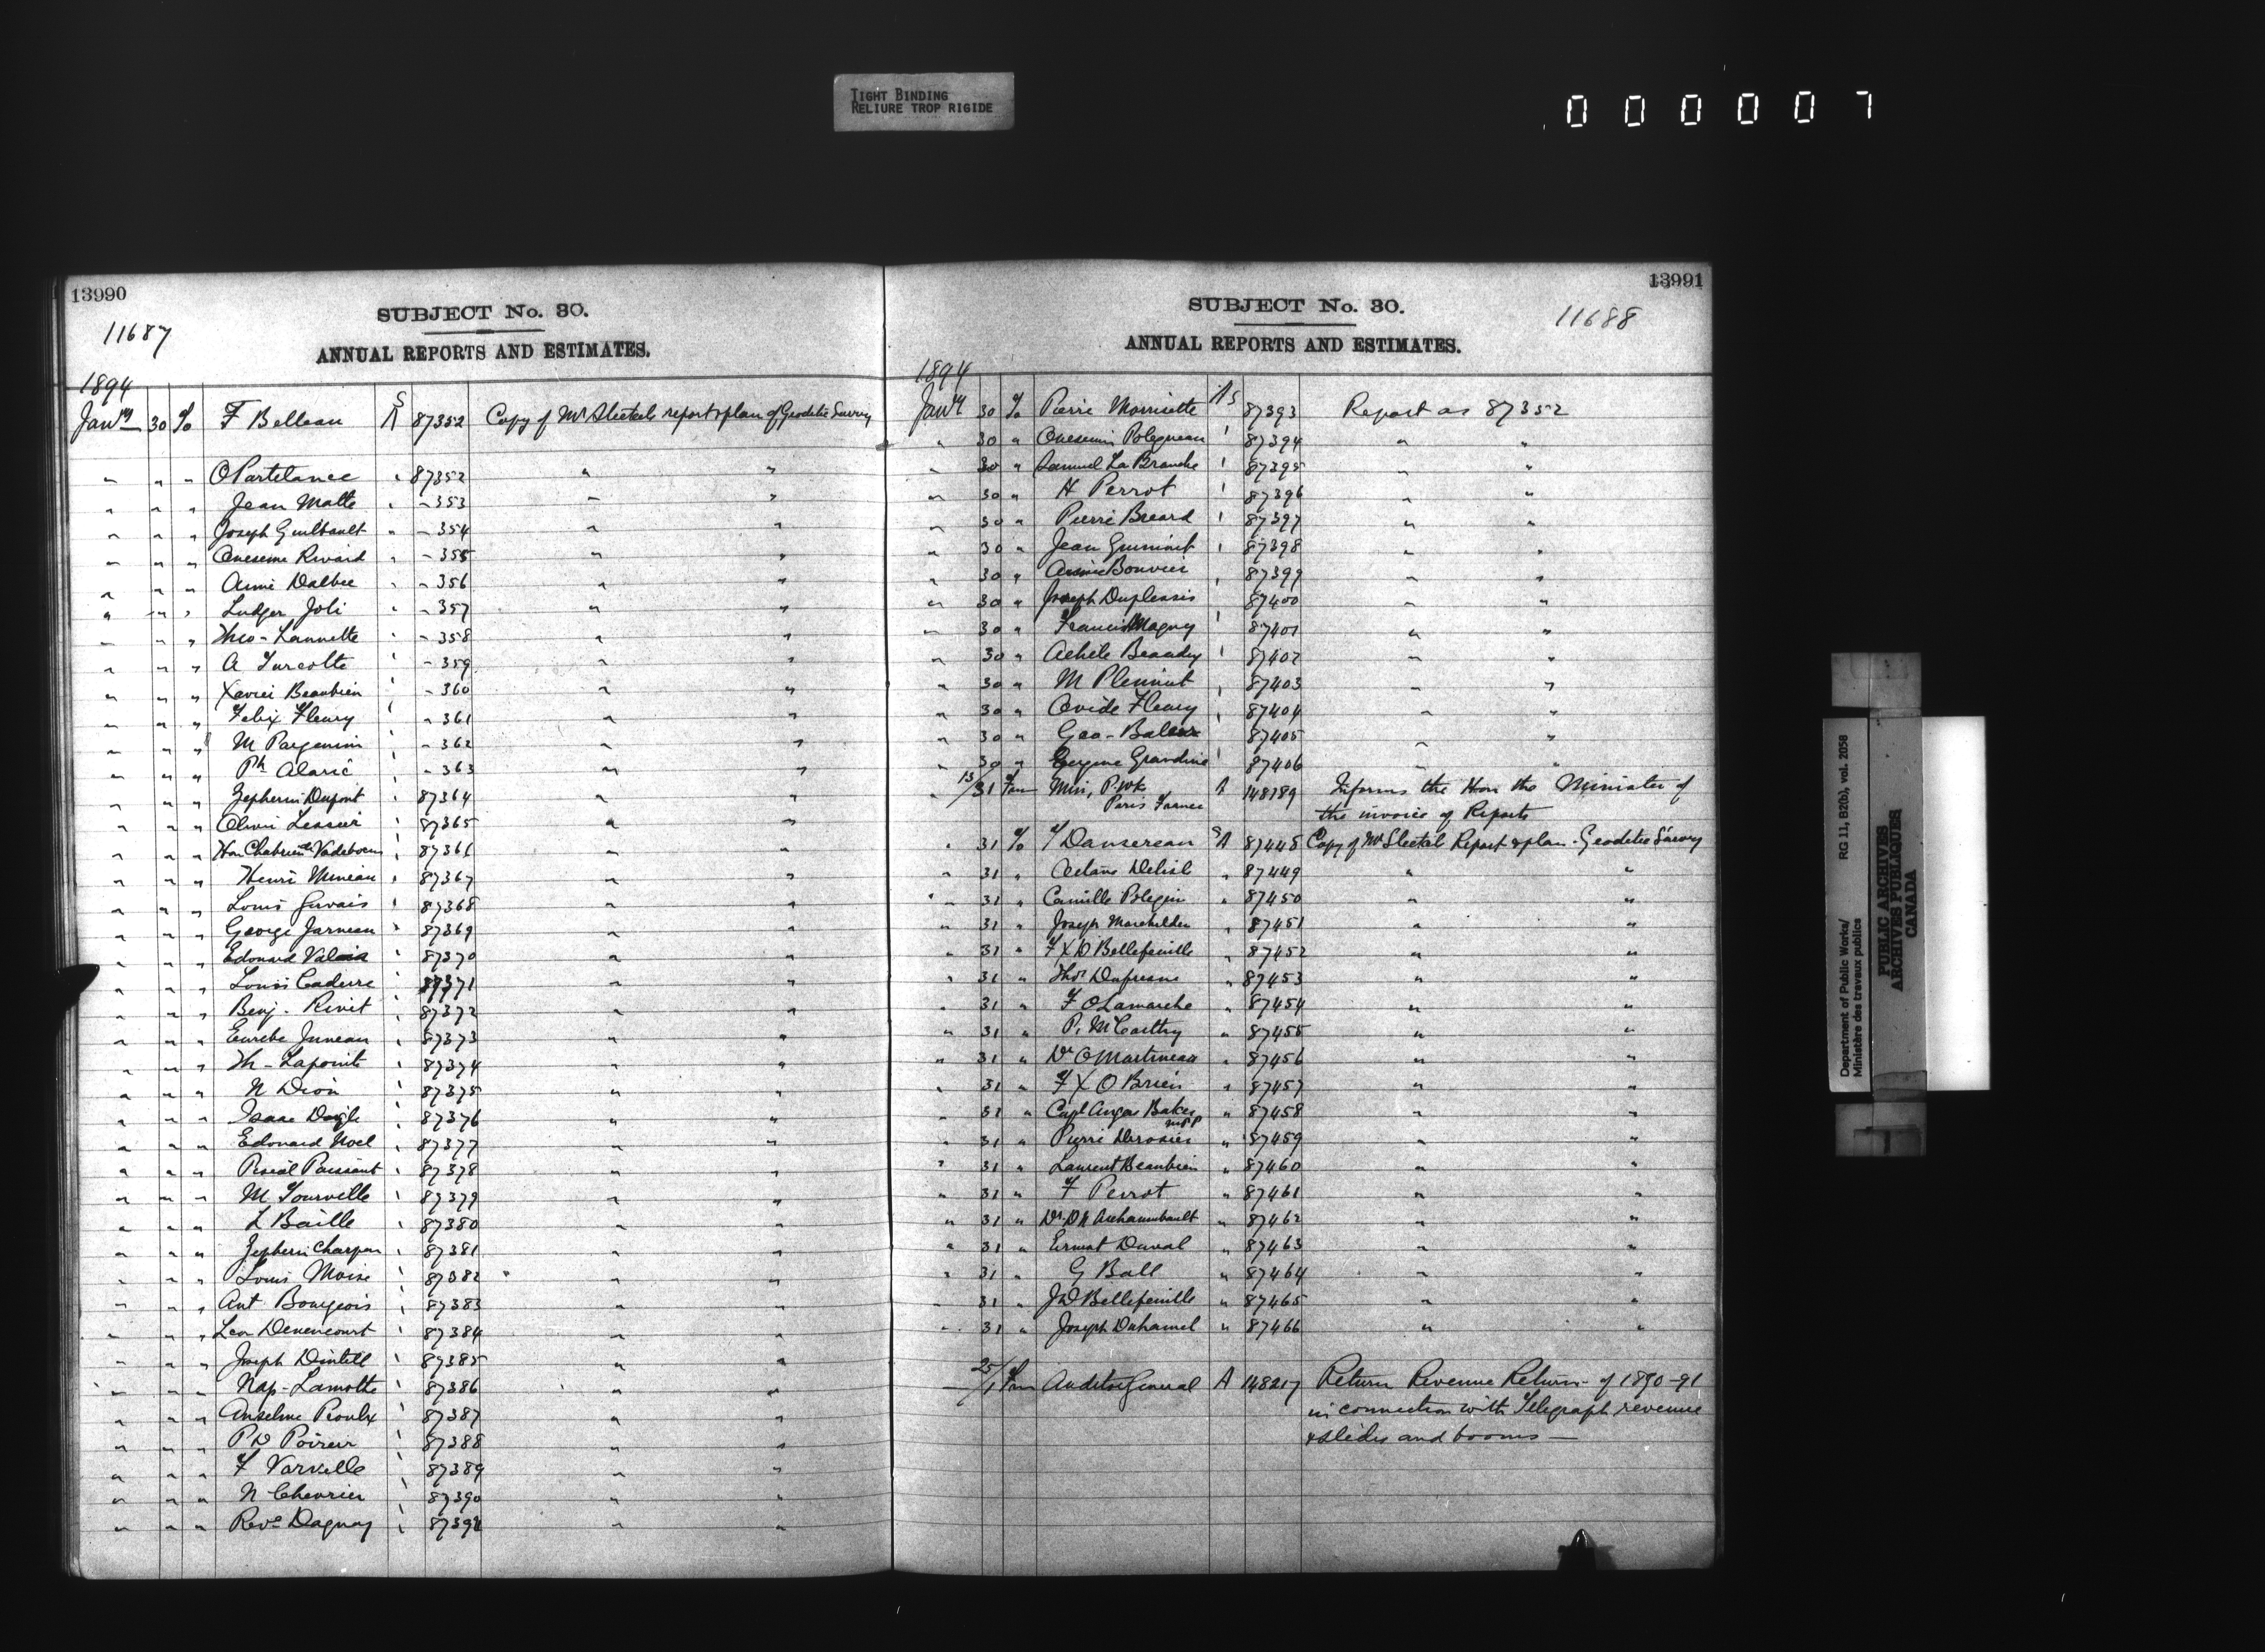 TIGHT BINDING
RELIURE TROP RIGIDE
000007
13990
SUBJECT No. 30.
11687
ANNUAL REPORTS AND ESTIMATES.
1894
Jany 30 To F Belleau A S 87352 Copy of Mr Steckels report & plan of Geodetic Survey
" " " O Partelance " 87352 " "
" " " Jean Matte " - 353 " "
" " " Joseph Guilbault " - 354 " "
" " " Onesime Rivard " - 355 " "
" " " Aimé Dalbec " - 356 " "
" " " Ludger Joli " - 357 " "
" " " Theo - Lannette " - 358 " "
" " " A Turcotte " - 359 " "
" " " Xavier Beaubien " - 360 " "
" " " Felix Fleury " - 361 " "
" " " M " - 362 " "
" " " Ph Alaric " - 363 " "
" " " Zepherin Dupont " 87364 " "
" " " Lessier " 87365 " "
" " " Hon " 87366 " "
" " " Henri Mineau " 87367 " "
" " " Louis Gervais " 87368 " "
" " " George Garneau " 87369 " "
" " " Edouard Valois " 87370 " "
" " " Louis Caderre " 87371 " "
" " " Benj. Rivet " 87372 " "
" " " Juneau " 87373 " "
" " " Th - Lapointe " 87374 " "
" " " N Dion " 87375 " "
" " " Isaac " 87376 " "
" " " Edouard Noel " 87377 " "
" " " Paissant " 87378 " "
" " " M Tourville " 87379 " "
" " " L Baille " 87380 " "
" " " Zepherin " 87381 " "
" " " Louis Moise " 87382 " "
" " " Ant Bourgeois " 87383 " "
" " " Leon Denencourt " 87384 " "
" " " Joseph " 87385 " "
" " " Nap - Lamothe " 87386 " "
" " " Anselme Proulx " 87387 " "
" " " P D Poirier " 87388 " "
" " " F Varville " 87389 " "
" " " N Chevrier " 87390 " "
" " " Revd Daguay " 87391 " "
13991
SUBJECT No. 30.
11688
ANNUAL REPORTS AND ESTIMATES.
1894
Jany 30 To Pierre Morrisette A S 87393 Report as 87352
" 30 " Onesime 87394 " "
" 30 " Samuel La Branche 87395 " "
" 30 " H Perrot 87396 " "
" 30 " Pierre Breard 87397 " "
" 30 " Jean 87398 " "
" 30 " Bouvier 87399 " "
" 30 " Joseph Duplessis 87400 " "
" 30 " Francis Magny 87401 " "
" 30 " Achele Beaudry 87402 " "
" 30 " M 87403 " "
" 30 " Ovide Fleury 87404 " "
" 30 " Geo - 87405 " "
" 30 " Eugene 87406 " "
" 13/31 Fm Min, P. Wks A 148189 Informs the Hon the Minister of
Paris France the invoice of Reports
" 31 To Dansereau S A 87448 Copy of Mr Steckel Report & plan - Geodetic Survey
" 31 " Octave Delisle " 87449 " "
" 31 " Camille " 87450 " "
" 31 " Joseph " 87451 " "
" 31 " F X D Bellefeuille " 87452 " "
" 31 " Thos Dufresne " 87453 " "
" 31 " F O Lamarche " 87454 " "
" 31 " P. McCarthy " 87455 " "
" 31 " Dr O Martineau " 87456 " "
" 31 " F X O Brien " 87457 " "
" 31 " Capt Baker " 87458 " "
" 31 " Pierre Derosier " 87459 " "
" 31 " Laurent Beaubien " 87460 " "
" 31 " F Perrot " 87461 " "
" 31 " Dr. Archambault " 87462 " "
" 31 " Ernest Duval " 87463 " "
" 31 " G Ball " 87464 " "
" 31 " J D Bellefeuille " 87465 " "
" 31 " Joseph Duhamel " 87466 " "
25/1 Fm Auditor General A 148217 Return Revenue Return - of 1890-91
in connection with Telegraph revenue
& slides and booms —
Department of Public Works/
Ministère des travaux publics
RG 11, B2(b), vol. 2058
PUBLIC ARCHIVES
ARCHIVES PUBLIQUES
CANADA